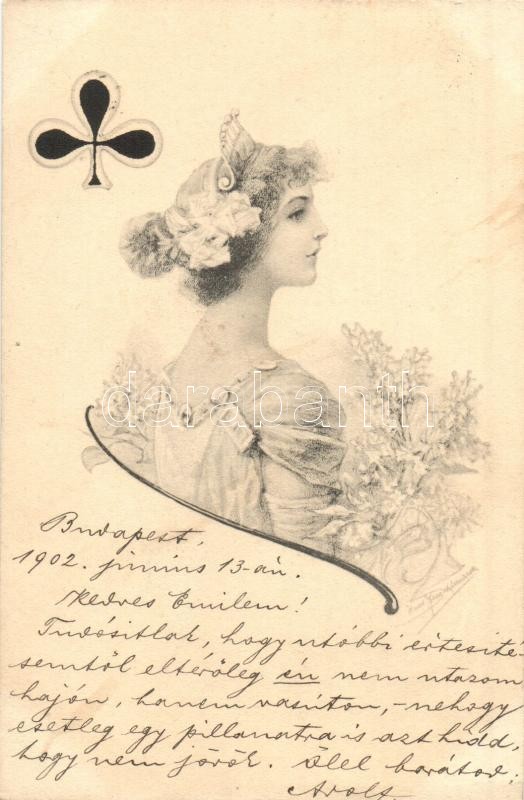 darabanth
Budapest,
1902. június 13-án.
Kedves Emilem!
Tudósitlak, hogy utóbbi értesité-
semtől eltérőleg én nem utazom
hajón, hanem vasúton, - nehogy
esetleg egy pillanatra is azt hidd,
hogy nem jövök. Ölel barátod:
Adolf